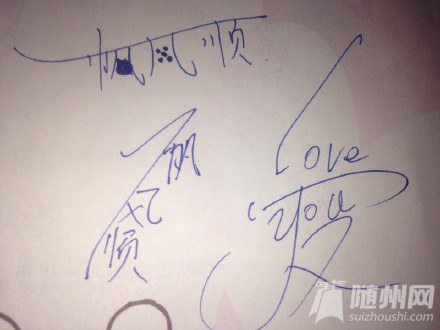 一帆风顺
一帆风顺
Love
you
随州网
suizhoushi.com